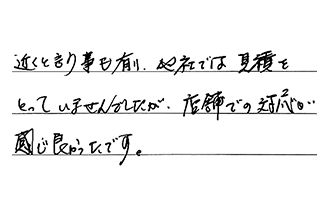 近くと言う事も有り、他社では見積を
とっていませんでしたが、店舗での対応が
感じ良かったです。